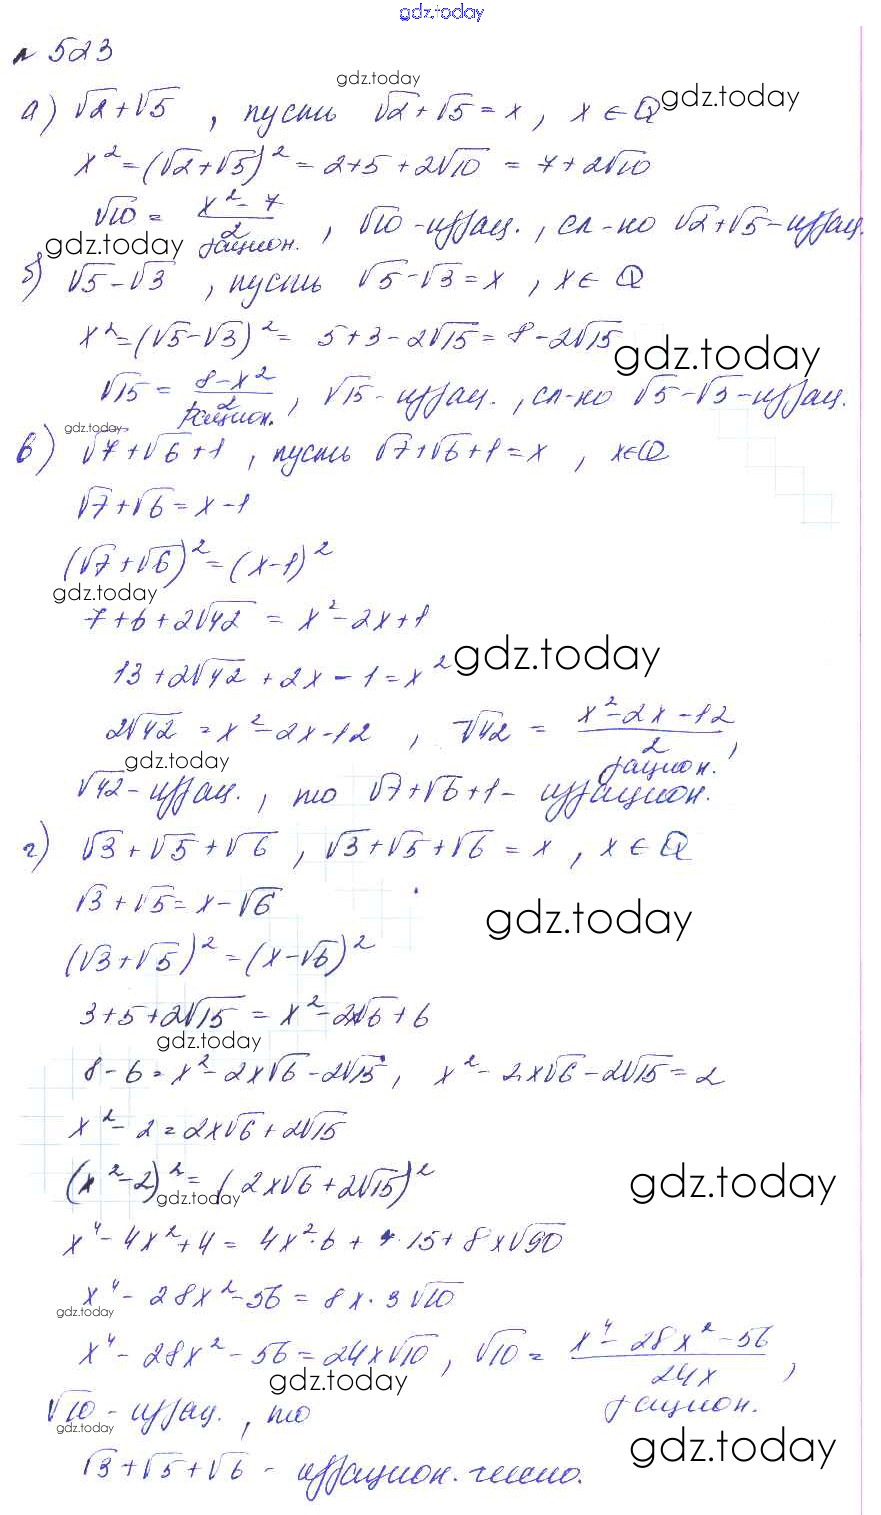 gdz.today
№ 523
gdz.today
а) √2+√5 , пусть √2+√5 = x, x ∈ Q gdz.today
x² = (√2+√5)² = 2+5+2√10 = 7+2√10
√10 = (x² - 7)/2 , √10 - иррац. , сл-но √2+√5 - иррац.
gdz.today рацион.
б) √5-√3 , пусть √5-√3 = x , x ∈ Q
x² = (√5-√3)² = 5+3-2√15 = 8-2√15
gdz.today
√15 = (8-x²)/2 , √15 - иррац. , сл-но √5-√3 - иррац.
рацион.
gdz.today
в) √7+√6+1 , пусть √7+√6+1 = x , x∈Q
√7+√6 = x-1
(√7+√6)² = (x-1)²
gdz.today
7+6+2√42 = x²-2x+1
gdz.today
13+2√42+2x-1 = x²
2√42 = x²-2x-12 , √42 = (x²-2x-12)/2 ,
gdz.today рацион.
√42 - иррац. , то √7+√6+1 - иррацион.
г) √3+√5+√6 , √3+√5+√6 = x , x ∈ Q
√3+√5 = x-√6
gdz.today
(√3+√5)² = (x-√6)²
3+5+2√15 = x²-2x√6+6
gdz.today
8-6 = x²-2x√6-2√15 , x²-2x√6-2√15 = 2
x²-2 = 2x√6+2√15
(x²-2)² = (2x√6+2√15)²
gdz.today gdz.today
x⁴-4x²+4 = 4x²·6+4·15+8x√90
x⁴-28x²-56 = 8x·3√10
gdz.today
x⁴-28x²-56 = 24x√10 , √10 = (x⁴-28x²-56)/24x ,
gdz.today
√10 - иррац. , то рацион.
gdz.today
gdz.today
√3+√5+√6 - иррацион. число.